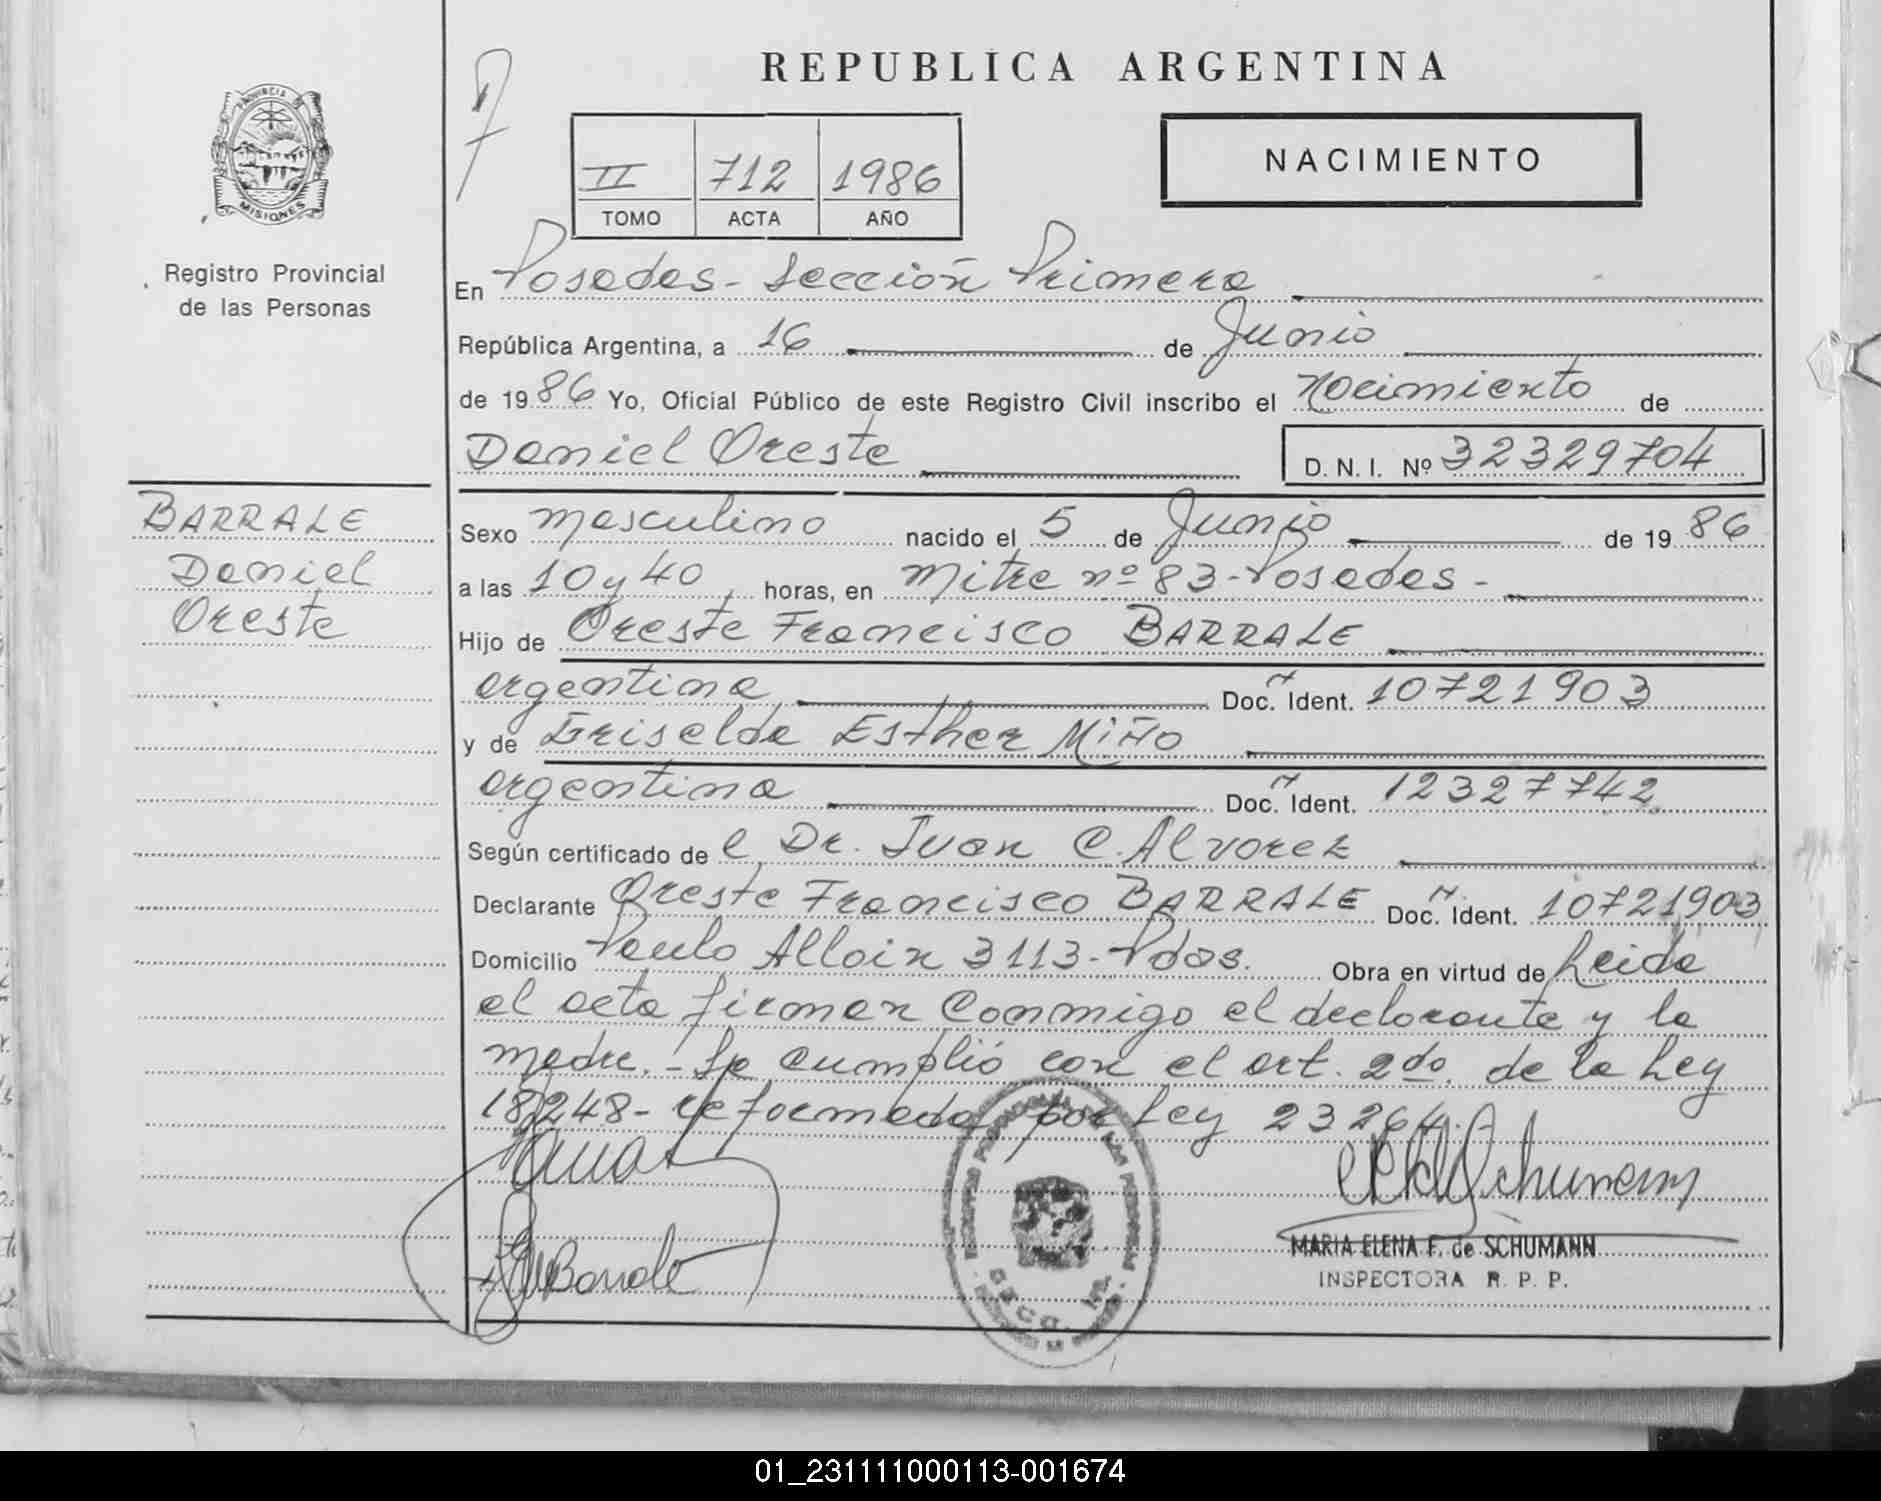 REPUBLICA ARGENTINA
PROVINCIA DE
MISIONES
Registro Provincial
de las Personas
II 712 1986
TOMO ACTA AÑO
NACIMIENTO
En Posadas - Sección Primera
República Argentina, a 16 de Junio
de 1986 Yo, Oficial Público de este Registro Civil inscribo el Nacimiento de
Daniel Oreste D. N. I. Nº 32329704
BARRALE
Daniel
Oreste
Sexo masculino nacido el 5 de Junio de 1986
a las 10 y 40 horas, en Mitre nº 83 - Posadas -
Hijo de Oreste Francisco BARRALE
argentina Doc. Ident. 10721903
y de Griselda Esther Miño
argentina Doc. Ident. 12327742
Según certificado de el Dr. Juan C. Alvarez
Declarante Oreste Francisco BARRALE Doc. Ident. 10721903
Domicilio Paulo Alloin 3113 - Pdas. Obra en virtud de Leida
el acta firman conmigo el declarante y la
madre. - Se cumplió con el art. 2do. de la Ley
18248 - reformada por Ley 23264.
MARIA ELENA F. de SCHUMANN
INSPECTORA R. P. P.
01_231111000113-001674